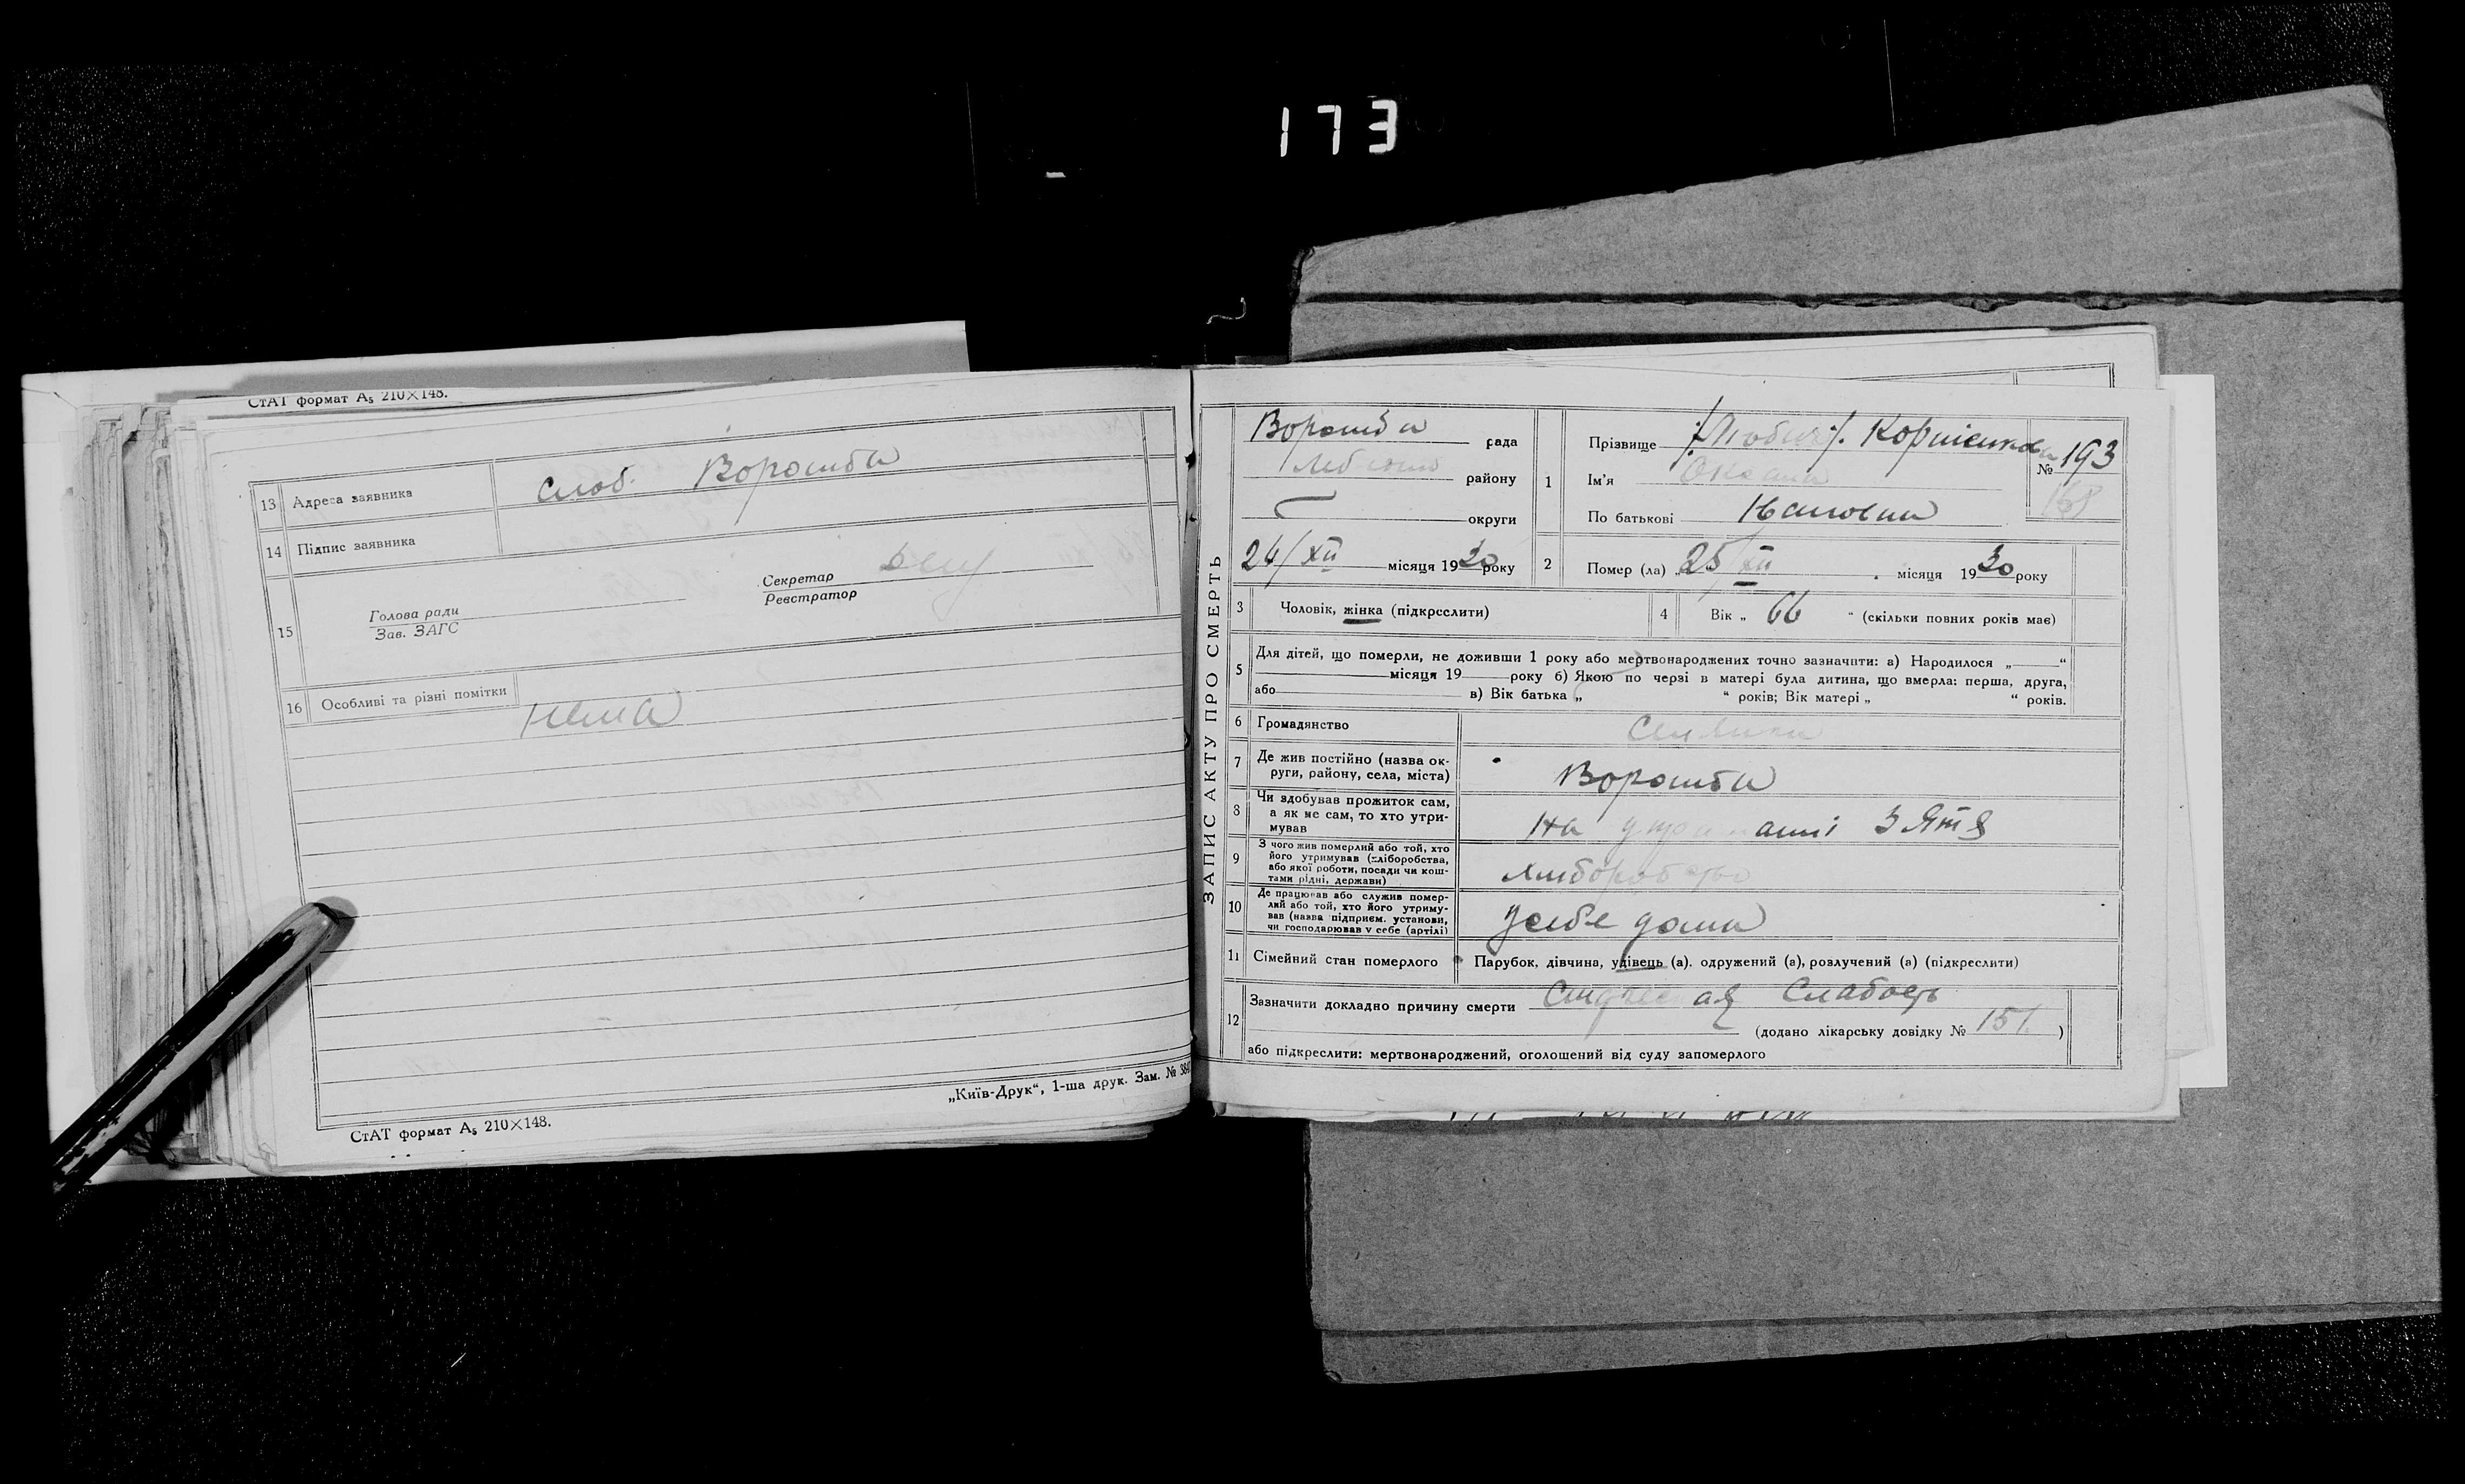 173
СтАТ формат А₅ 210×148.
13 Адреса заявника Слоб. Ворожба
14 Підпис заявника
15 Голова ради
Зав. ЗАГС
Секретар
Реєстратор
16 Особливі та різні помітки
Нема
„Київ-Друк“, 1-ша друк. Зам. №
СтАТ формат А₅ 210×148.
ЗАПИС АКТУ ПРО СМЕРТЬ
Ворожба рада
району
округи
24/XII місяця 1930 року
1 Прізвище Корнієнкова
№ 193
168
Ім'я Оксана
По батькові
2 Помер (ла) 25/XII місяця 1930 року
3 Чоловік, жінка (підкреслити)
4 Вік „ 66 “ (скільки повних років має)
5 Для дітей, що померли, не доживши 1 року або мертвонароджених точно зазначити: а) Народилося „ “
місяця 19 року б) Якою по черзі в матері була дитина, що вмерла: перша, друга,
або в) Вік батька „ “ років; Вік матері „ “ років.
6 Громадянство
7 Де жив постійно (назва ок-
руги, району, села, міста)
Ворожба
8 Чи здобував прожиток сам,
а як не сам, то хто утри-
мував
На утриманні зятя
9 З чого жив померлий або той, хто
його утримував (хліборобства,
або якої роботи, посади чи кош-
тами рідні, держави)
10 Де працював або служив помер-
лий або той, хто його утриму-
вав (назва підприєм. установи,
чи господарював у себе (артілі)
у себе дома
11 Сімейний стан померлого Парубок, дівчина, удівець (а). одружений (а), розлучений (а) (підкреслити)
12 Зазначити докладно причину смерти слабость
(додано лікарську довідку № )
або підкреслити: мертвонароджений, оголошений від суду запомерлого